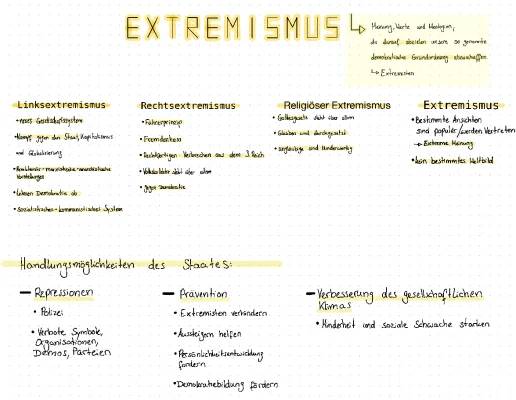 EXTREMISMUS
Meinung, Werte und Ideologien,
die darauf abzielen unsere so genannte
demokratische Grundordnung abzuschaffen
↳ Extremisten
Linksextremismus
• neues Gesellschaftssystem
• Kampf gegen den Staat, Kapitalismus
und Globalisierung
marxistische - anarchistische
Vorstellungen
• Lehnen Demokratie ab
• Sozialistisches - kommunistisches System
Rechtsextremismus
• Führerprinzip
• Fremdenhass
• Rechtfertigen Verbrechen aus dem 3. Reich
• steht über allem
• gegen Demokratie
Religiöser Extremismus
• Gottesgesetz steht über allem
• Glauben wird durchgesetzt
• und minderwertig
Extremismus
• Bestimmte Ansichten
sind populär/werden vertreten
→ Extreme Meinung
• kein bestimmtes Weltbild
Handlungsmöglichkeiten des Staates:
– Repressionen
• Polizei
• Verbote Symbole,
Organisationen,
Demos, Parteien
– Prävention
• Extremisten verhindern
• Aussteigern helfen
• Persönlichkeitsentwicklung
fördern
• Demokratiebildung fördern
– Verbesserung des gesellschaftlichen
Klimas
• Minderheit und soziale Schwache stärken